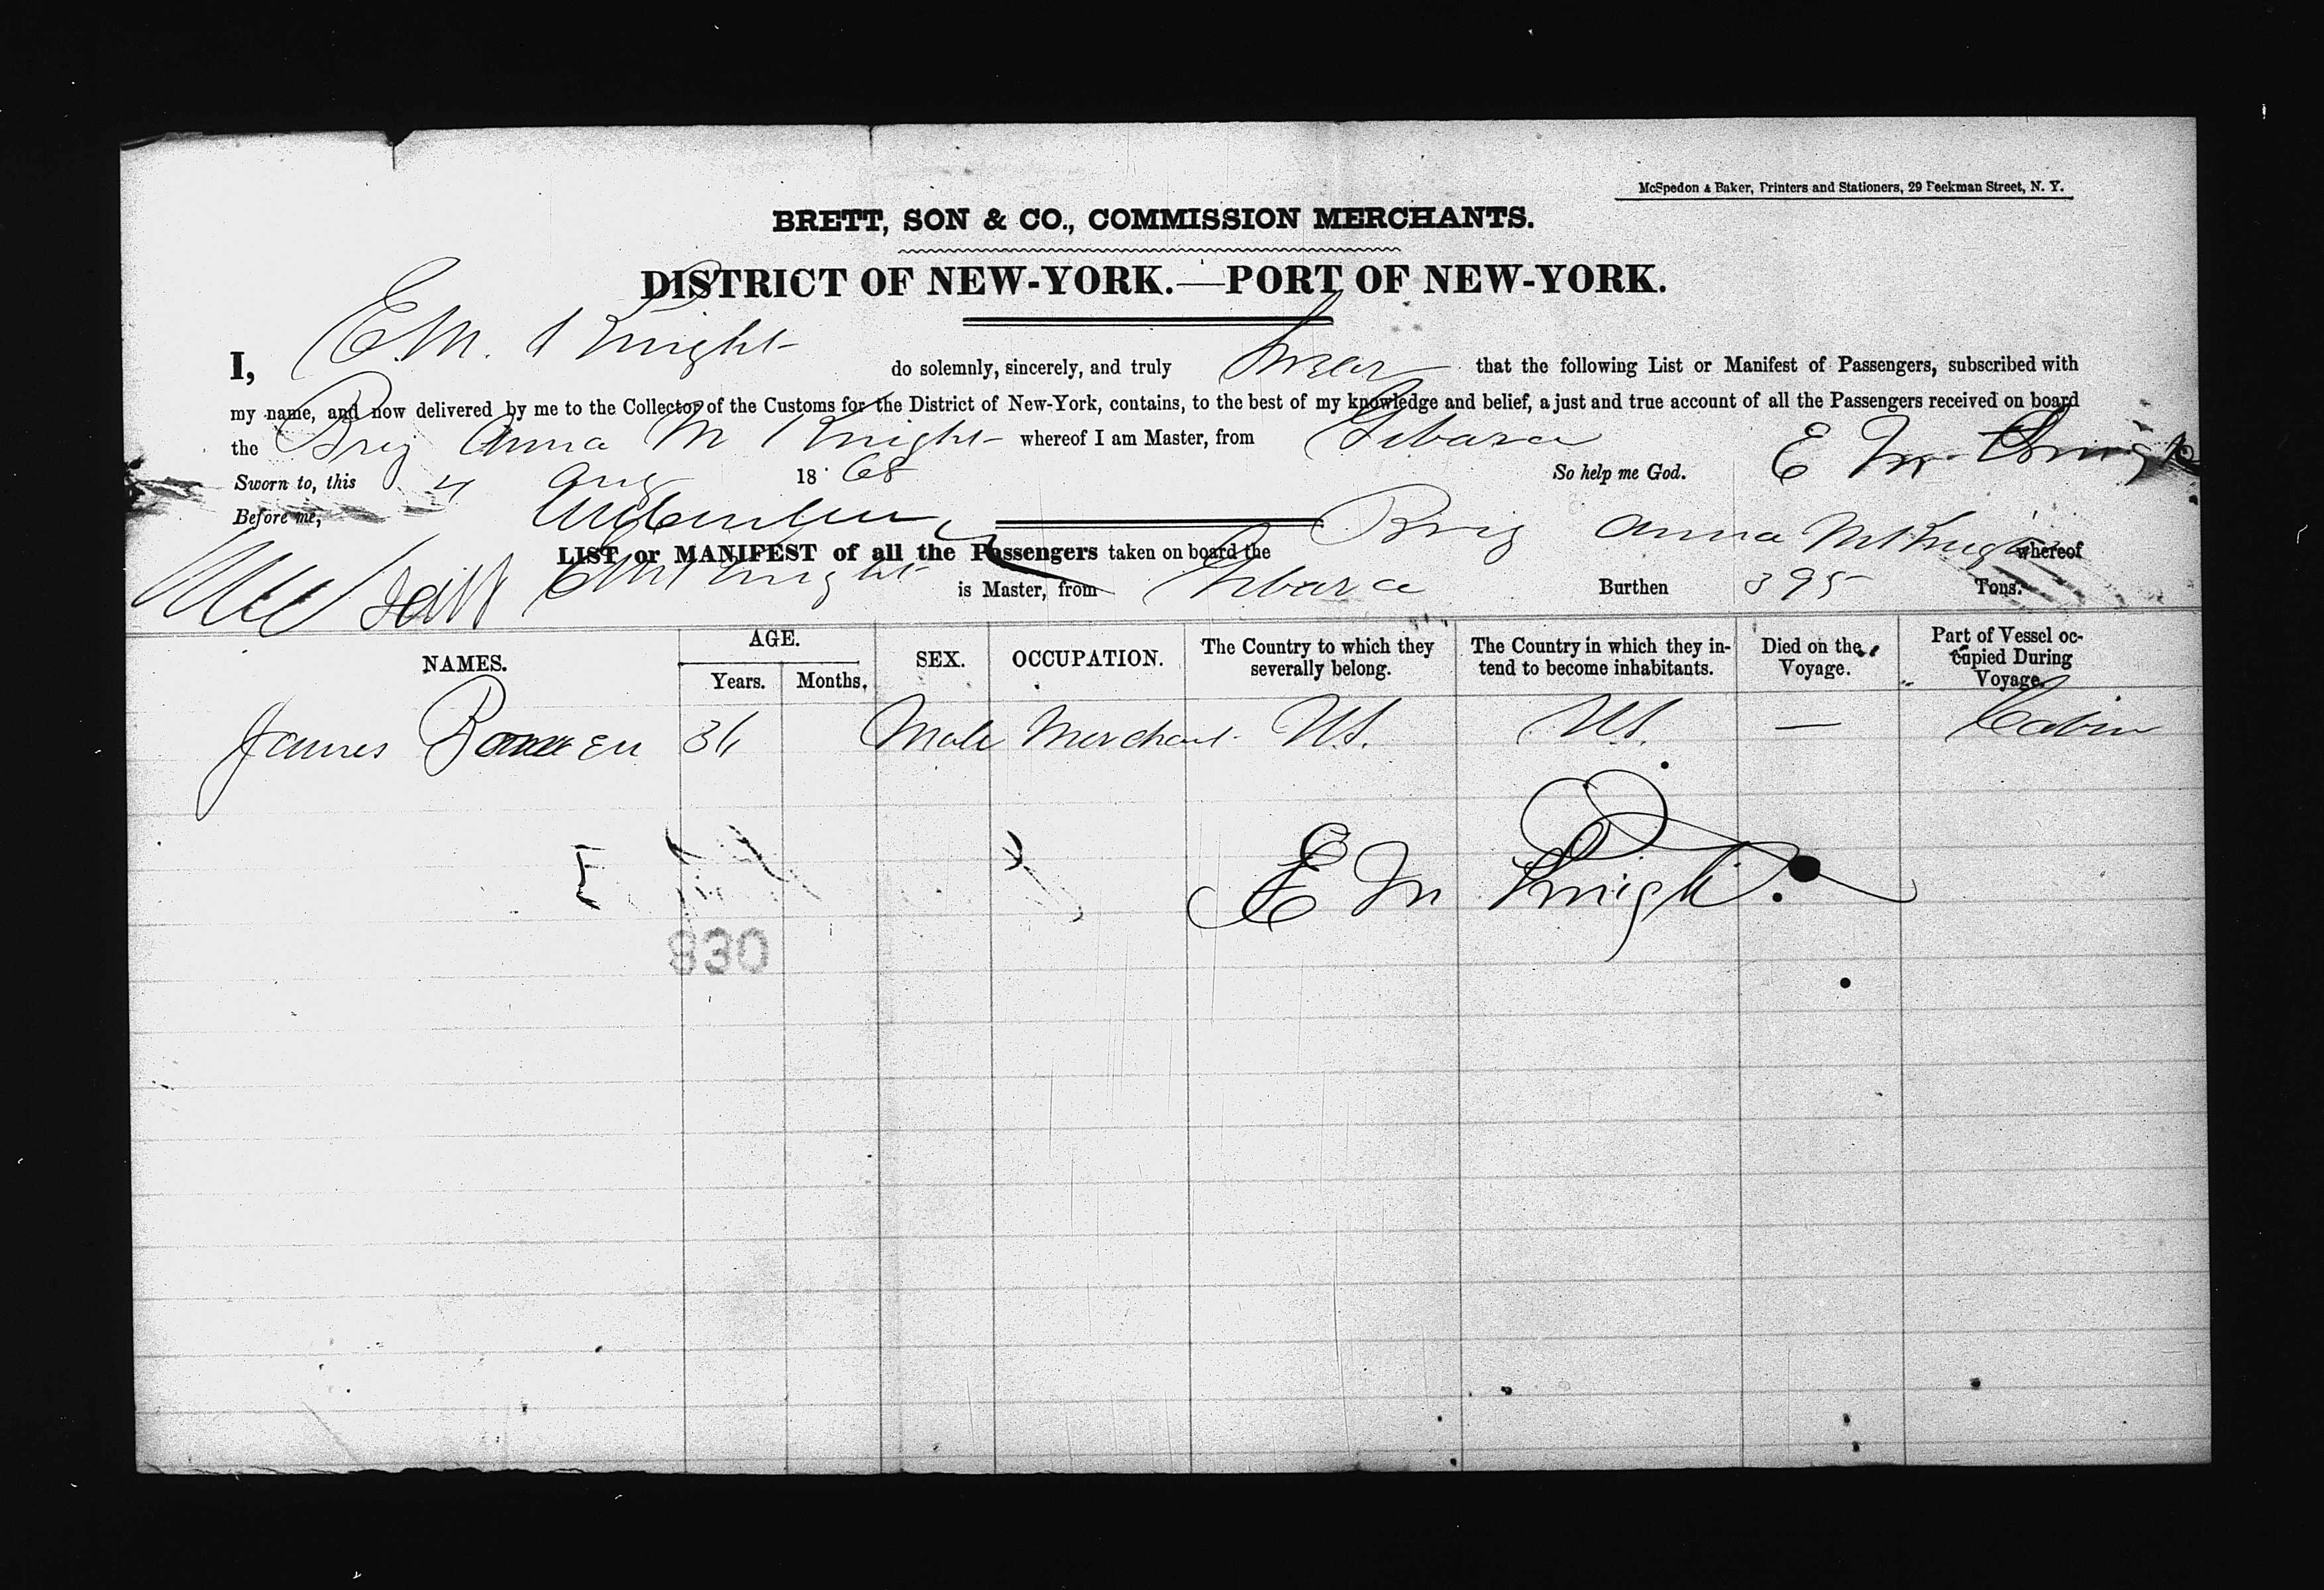 McSpedon & Baker, Printers and Stationers, 29 Beekman Street, N. Y.
BRETT, SON & CO., COMMISSION MERCHANTS.
DISTRICT OF NEW-YORK.—PORT OF NEW-YORK.
I, E.M. Knight do solemnly, sincerely, and truly swear that the following List or Manifest of Passengers, subscribed with
my name, and now delivered by me to the Collector of the Customs for the District of New-York, contains, to the best of my knowledge and belief, a just and true account of all the Passengers received on board
the Brig Anna M Knight whereof I am Master, from Gibara
Sworn to, this 4 Aug 1868 So help me God. E M Knight
Before me,
LIST or MANIFEST of all the Passengers taken on board the Brig Anna M Knight whereof
E M Knight is Master, from Gibara Burthen 395 Tons.
NAMES. AGE. Years. Months. SEX. OCCUPATION. The Country to which they severally belong. The Country in which they intend to become inhabitants. Died on the Voyage. Part of Vessel occupied During Voyage.
James 36 Male Merchant U.S. U.S. — Cabin
E M Knight.
830